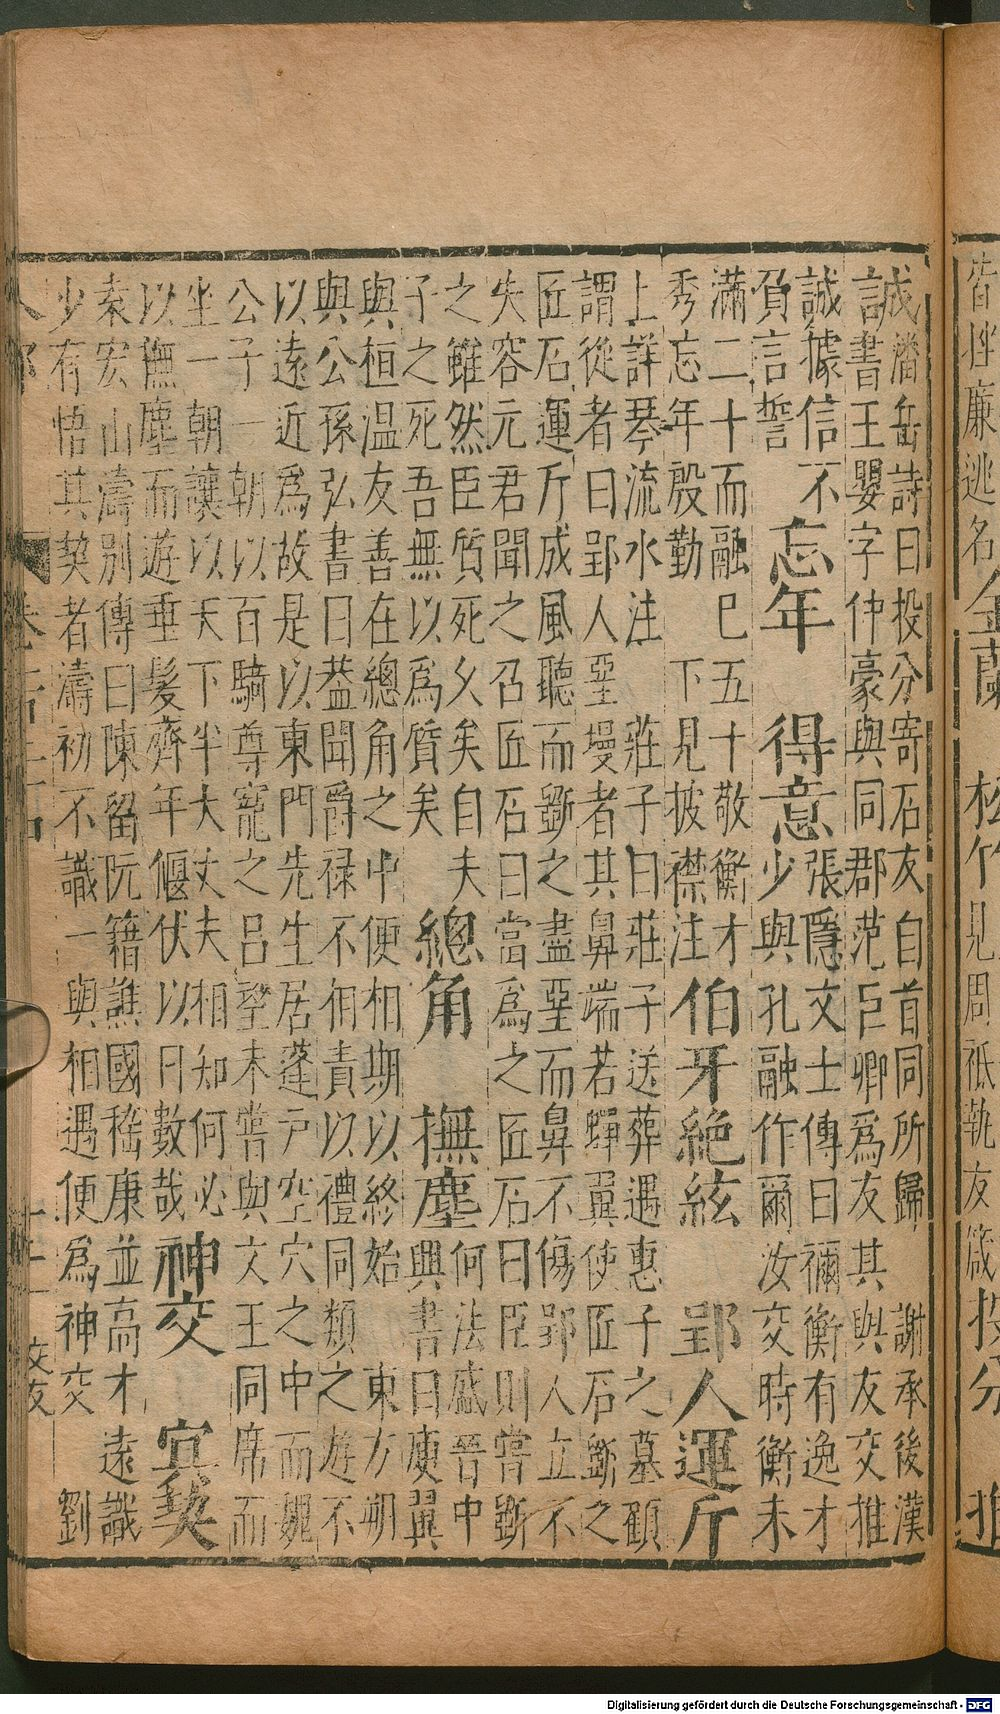 金蘭 松竹見周祗執友箴投分 推
誠潘岳詩曰投分寄石友白首同所歸 謝承後漢
書王嬰字仲豪與同郡范巨卿爲友其與友交推
誠據信不
負言誓 忘年 得意 張隱文士傳曰禰衡有逸才
少與孔融作爾汝交時衡未
滿二十而融已五十敬衡才
秀忘年殷勤 下見披襟注 伯牙絶絃 郢人運斤
上詳琴流水注 莊子曰莊子送葬遇惠子之墓顧
謂從者曰郢人堊墁者其鼻端若蟬翼使匠石斲之
匠石運斤成風聽而斲之盡堊而鼻不傷郢人立不
失容元君聞之召匠石曰當爲之匠石曰臣則嘗斲
之雖然臣質死久矣自夫
子之死吾無以爲質矣 總角 撫塵 何法盛晉中
興書曰庾翼
與桓温友善在總角之中便相期以終始 東方朔
與公孫弘書曰葢聞爵禄不相責以禮同類之遊不
以遠近爲故是以東門先生居蓬户空穴之中而魏
公子一朝以百騎尊寵之吕望未嘗與文王同席而
坐一朝讓以天下半大丈夫相知何必
以撫塵而遊垂髮齊年偃伏以日數哉 神交 冥契
袁宏山濤别傳曰陳留阮籍譙國嵇康並高才遠識
少有悟其契者濤初不識一與相遇便爲神交 劉
交友
Digitalisierung gefördert durch die Deutsche Forschungsgemeinschaft - DFG